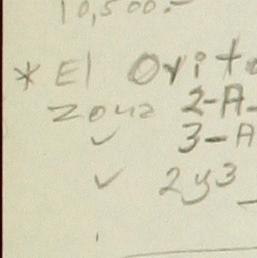 10,500.-
* El Orito
Zona 2-A-
✓ 3-A
✓ 2y3